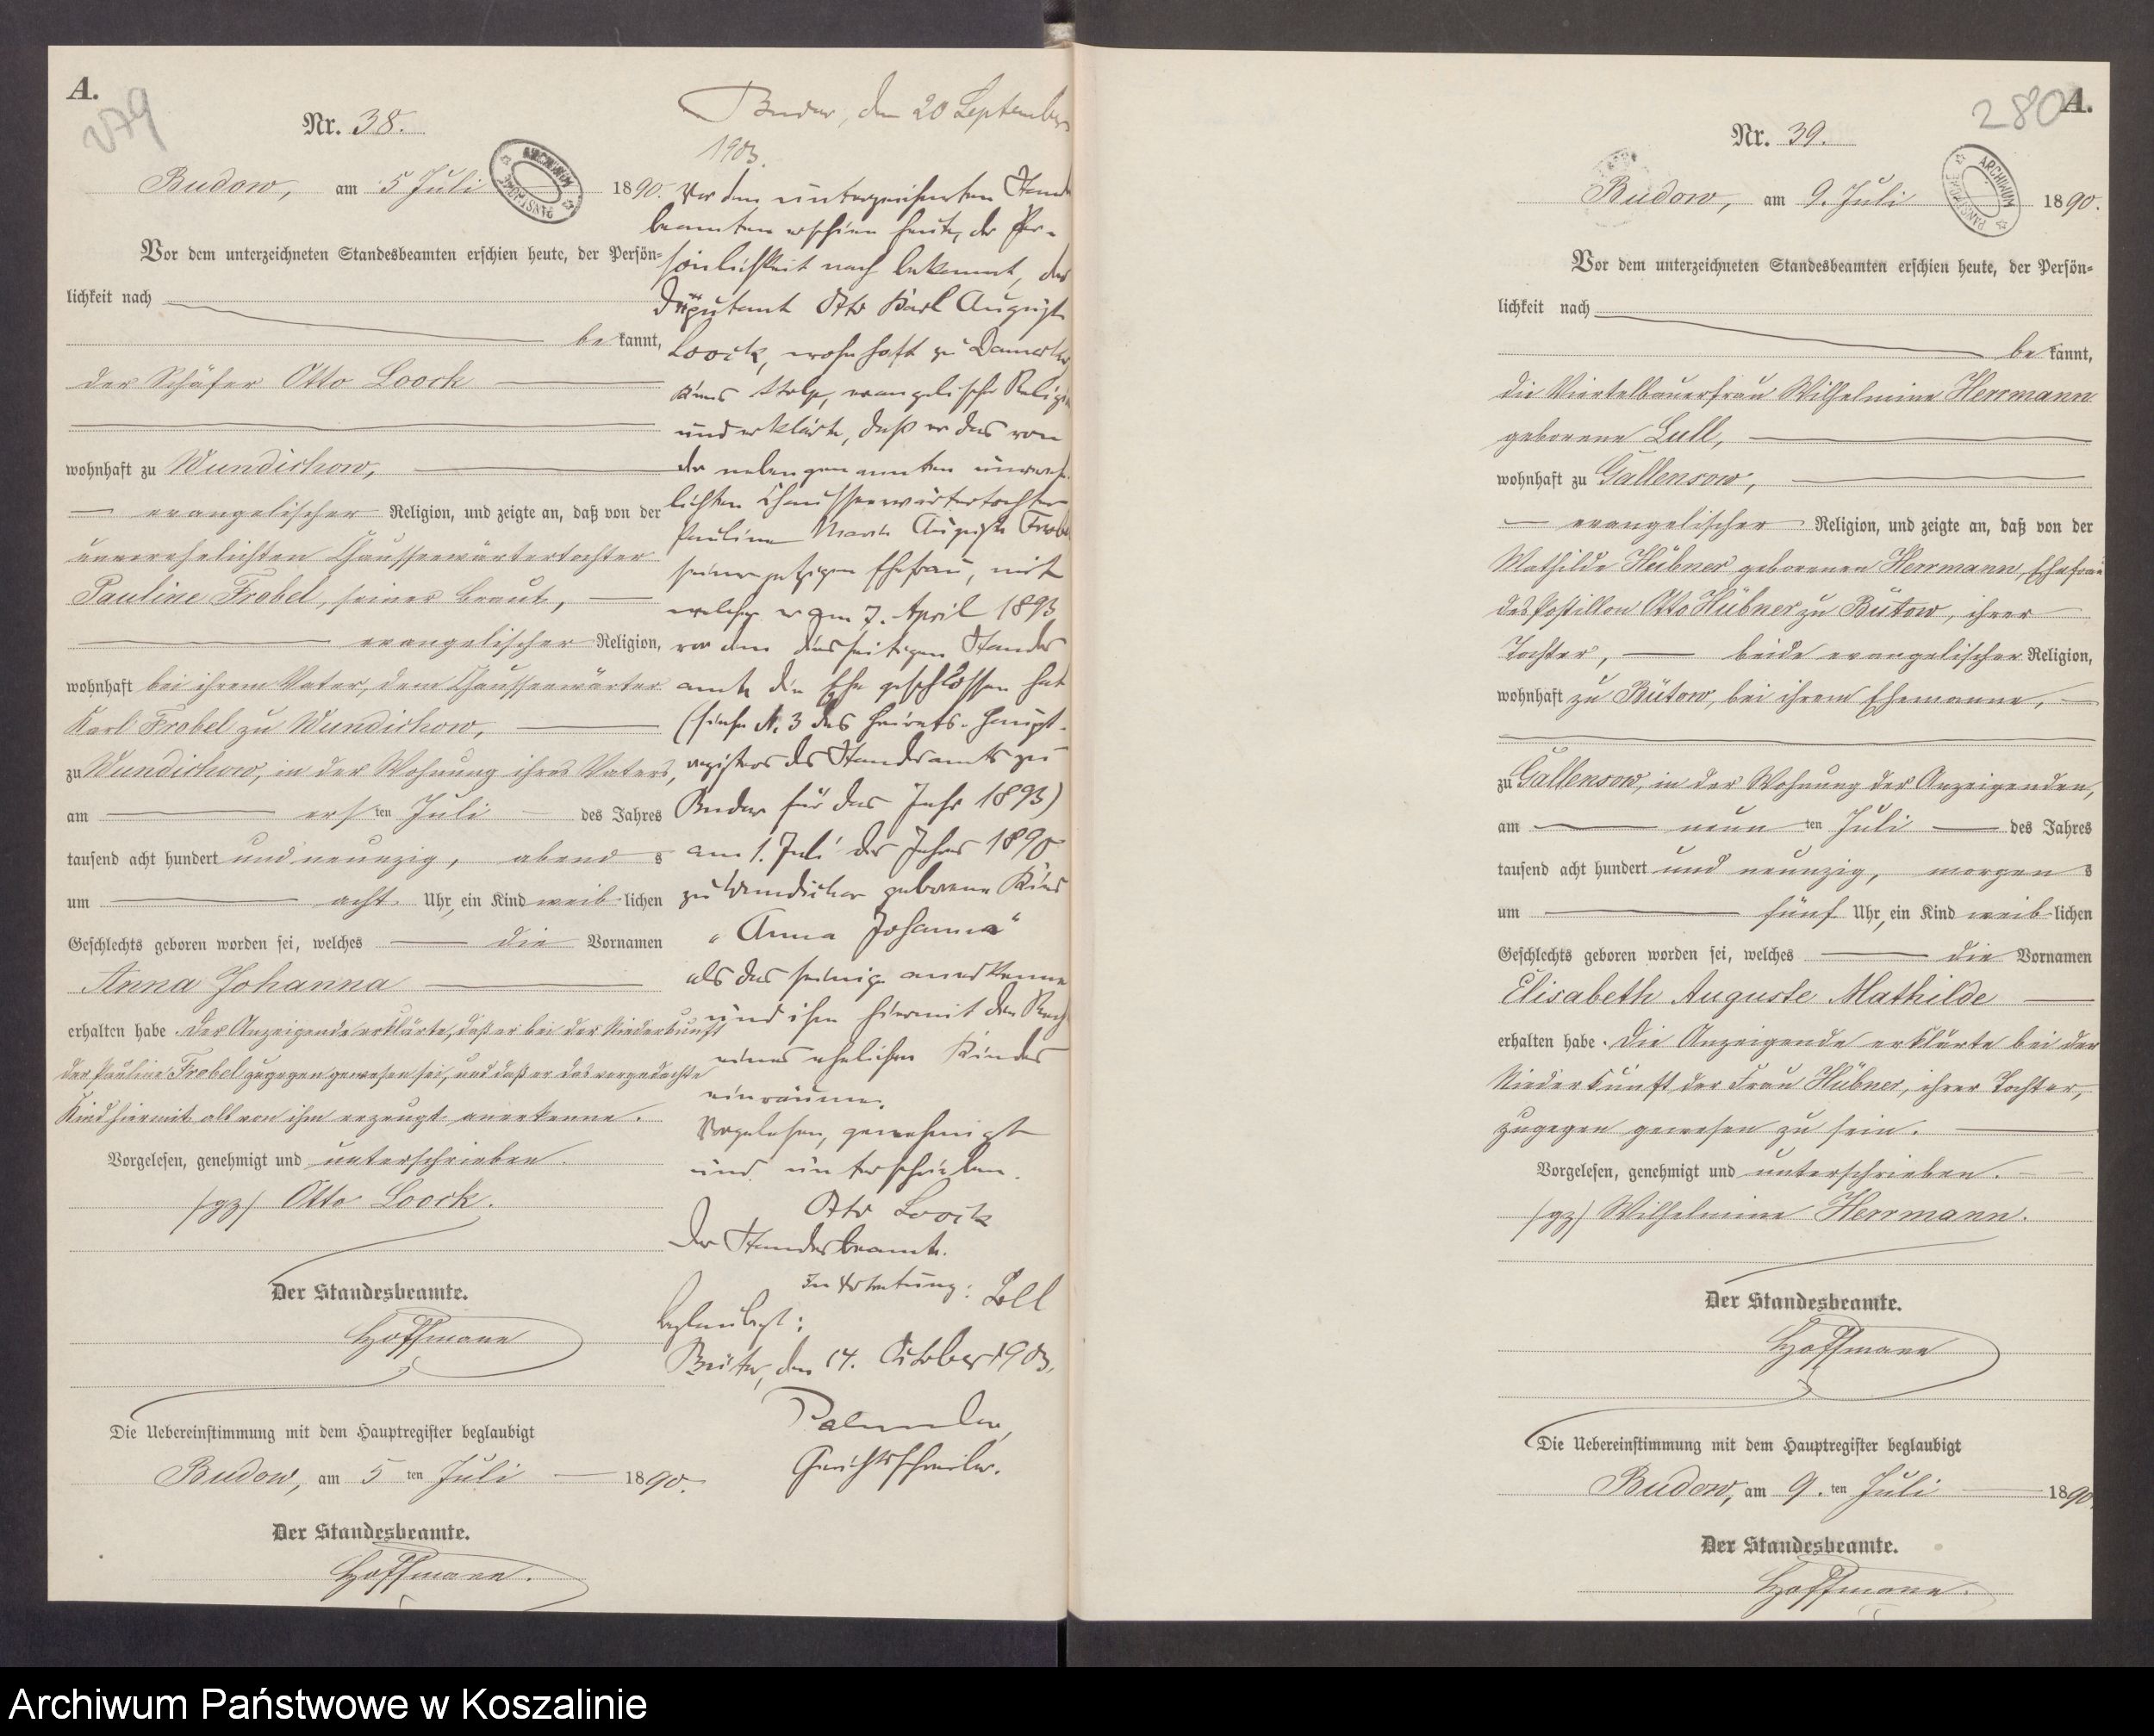 A.
279
Nr. 38.
Budow, am 5 Juli 1890.
ARCHIWUM PAŃSTWOWE
Vor dem unterzeichneten Standesbeamten erschien heute, der Persön-
lichkeit nach
bekannt,
der Schäfer Otto Loock
wohnhaft zu Wundichow,
evangelischer Religion, und zeigte an, daß von der
unverehelichten Chausseewärtertochter
Pauline Frobel, seiner Braut,
evangelischer Religion,
wohnhaft bei ihrem Vater, dem Chausseewärter
Karl Frobel zu Wundichow,
zu Wundichow, in der Wohnung ihres Vaters,
am ersten Juli des Jahres
tausend acht hundert und neunzig, abends
um acht Uhr, ein Kind weiblichen
Geschlechts geboren worden sei, welches die Vornamen
Anna Johanna
erhalten habe. Der Anzeigende erklärte, daß er bei der Niederkunft
der Pauline Frobel zugegen gewesen sei, und daß er das vorgedachte
Kind hiermit als von ihm erzeugt anerkenne.
Vorgelesen, genehmigt und unterschrieben.
/gz/ Otto Loock.
Der Standesbeamte.
Hoffmann
Die Uebereinstimmung mit dem Hauptregister beglaubigt
Budow, am 5 ten Juli 1890.
Der Standesbeamte.
Hoffmann.
Budow, den 20 September
1903.
Vor dem unterzeichneten Stands
beamten erschien heute, der Per-
sönlichkeit nach bekannt, der
Deputant Otto Karl August
Loock, wohnhaft zu
Kreis Stolp, evangelischer Religion
und erklärte, daß er das von
der nebengenannten unverehe-
lichten Chausseewärtertochter
Pauline Marie Auguste Frobel
seiner jetzigen Ehefrau, mit
welcher er am 7. April 1893
vor dem diesseitigen Standes
amte die Ehe geschlossen hat
(siehe N. 3 des Heirats-Haupt-
registers des Standesamts zu
Budow für das Jahr 1893)
am 1. Juli des Jahres 1890
zu Wundichow geborene Kind
„Anna Johanna“
als das seinige anerkenne
und ihm hiermit die Rechte
eines ehelichen Kindes
einräume.
Vorgelesen, genehmigt
und unterschrieben.
Otto Loock
Der Standesbeamte.
In Vertretung: Loll
Beglaubigt:
Bütow, den 14. Oktober 1903.
Gerichtsschreiber.
280
A.
Nr. 39.
Budow, am 9. Juli 1890.
ARCHIWUM PAŃSTWOWE
Vor dem unterzeichneten Standesbeamten erschien heute, der Persön-
lichkeit nach
bekannt,
die Viertelbauerfrau Wilhelmine Herrmann
geborene Lull,
wohnhaft zu Gallensow,
evangelischer Religion, und zeigte an, daß von der
Mathilde Hübner geborenen Herrmann, Ehefrau
des Postillon Otto Hübner zu Bütow, ihrer
Tochter, beide evangelischer Religion,
wohnhaft zu Bütow, bei ihrem Ehemanne,
zu Gallensow, in der Wohnung der Anzeigenden,
am neunten Juli des Jahres
tausend acht hundert und neunzig, morgens
um fünf Uhr, ein Kind weiblichen
Geschlechts geboren worden sei, welches die Vornamen
Elisabeth Auguste Mathilde
erhalten habe. Die Anzeigende erklärte bei der
Niederkunft der Frau Hübner, ihrer Tochter,
zugegen gewesen zu sein.
Vorgelesen, genehmigt und unterschrieben.
/gz/ Wilhelmine Herrmann.
Der Standesbeamte.
Hoffmann
Die Uebereinstimmung mit dem Hauptregister beglaubigt
Budow, am 9. ten Juli 1890
Der Standesbeamte.
Hoffmann.
Archiwum Państwowe w Koszalinie